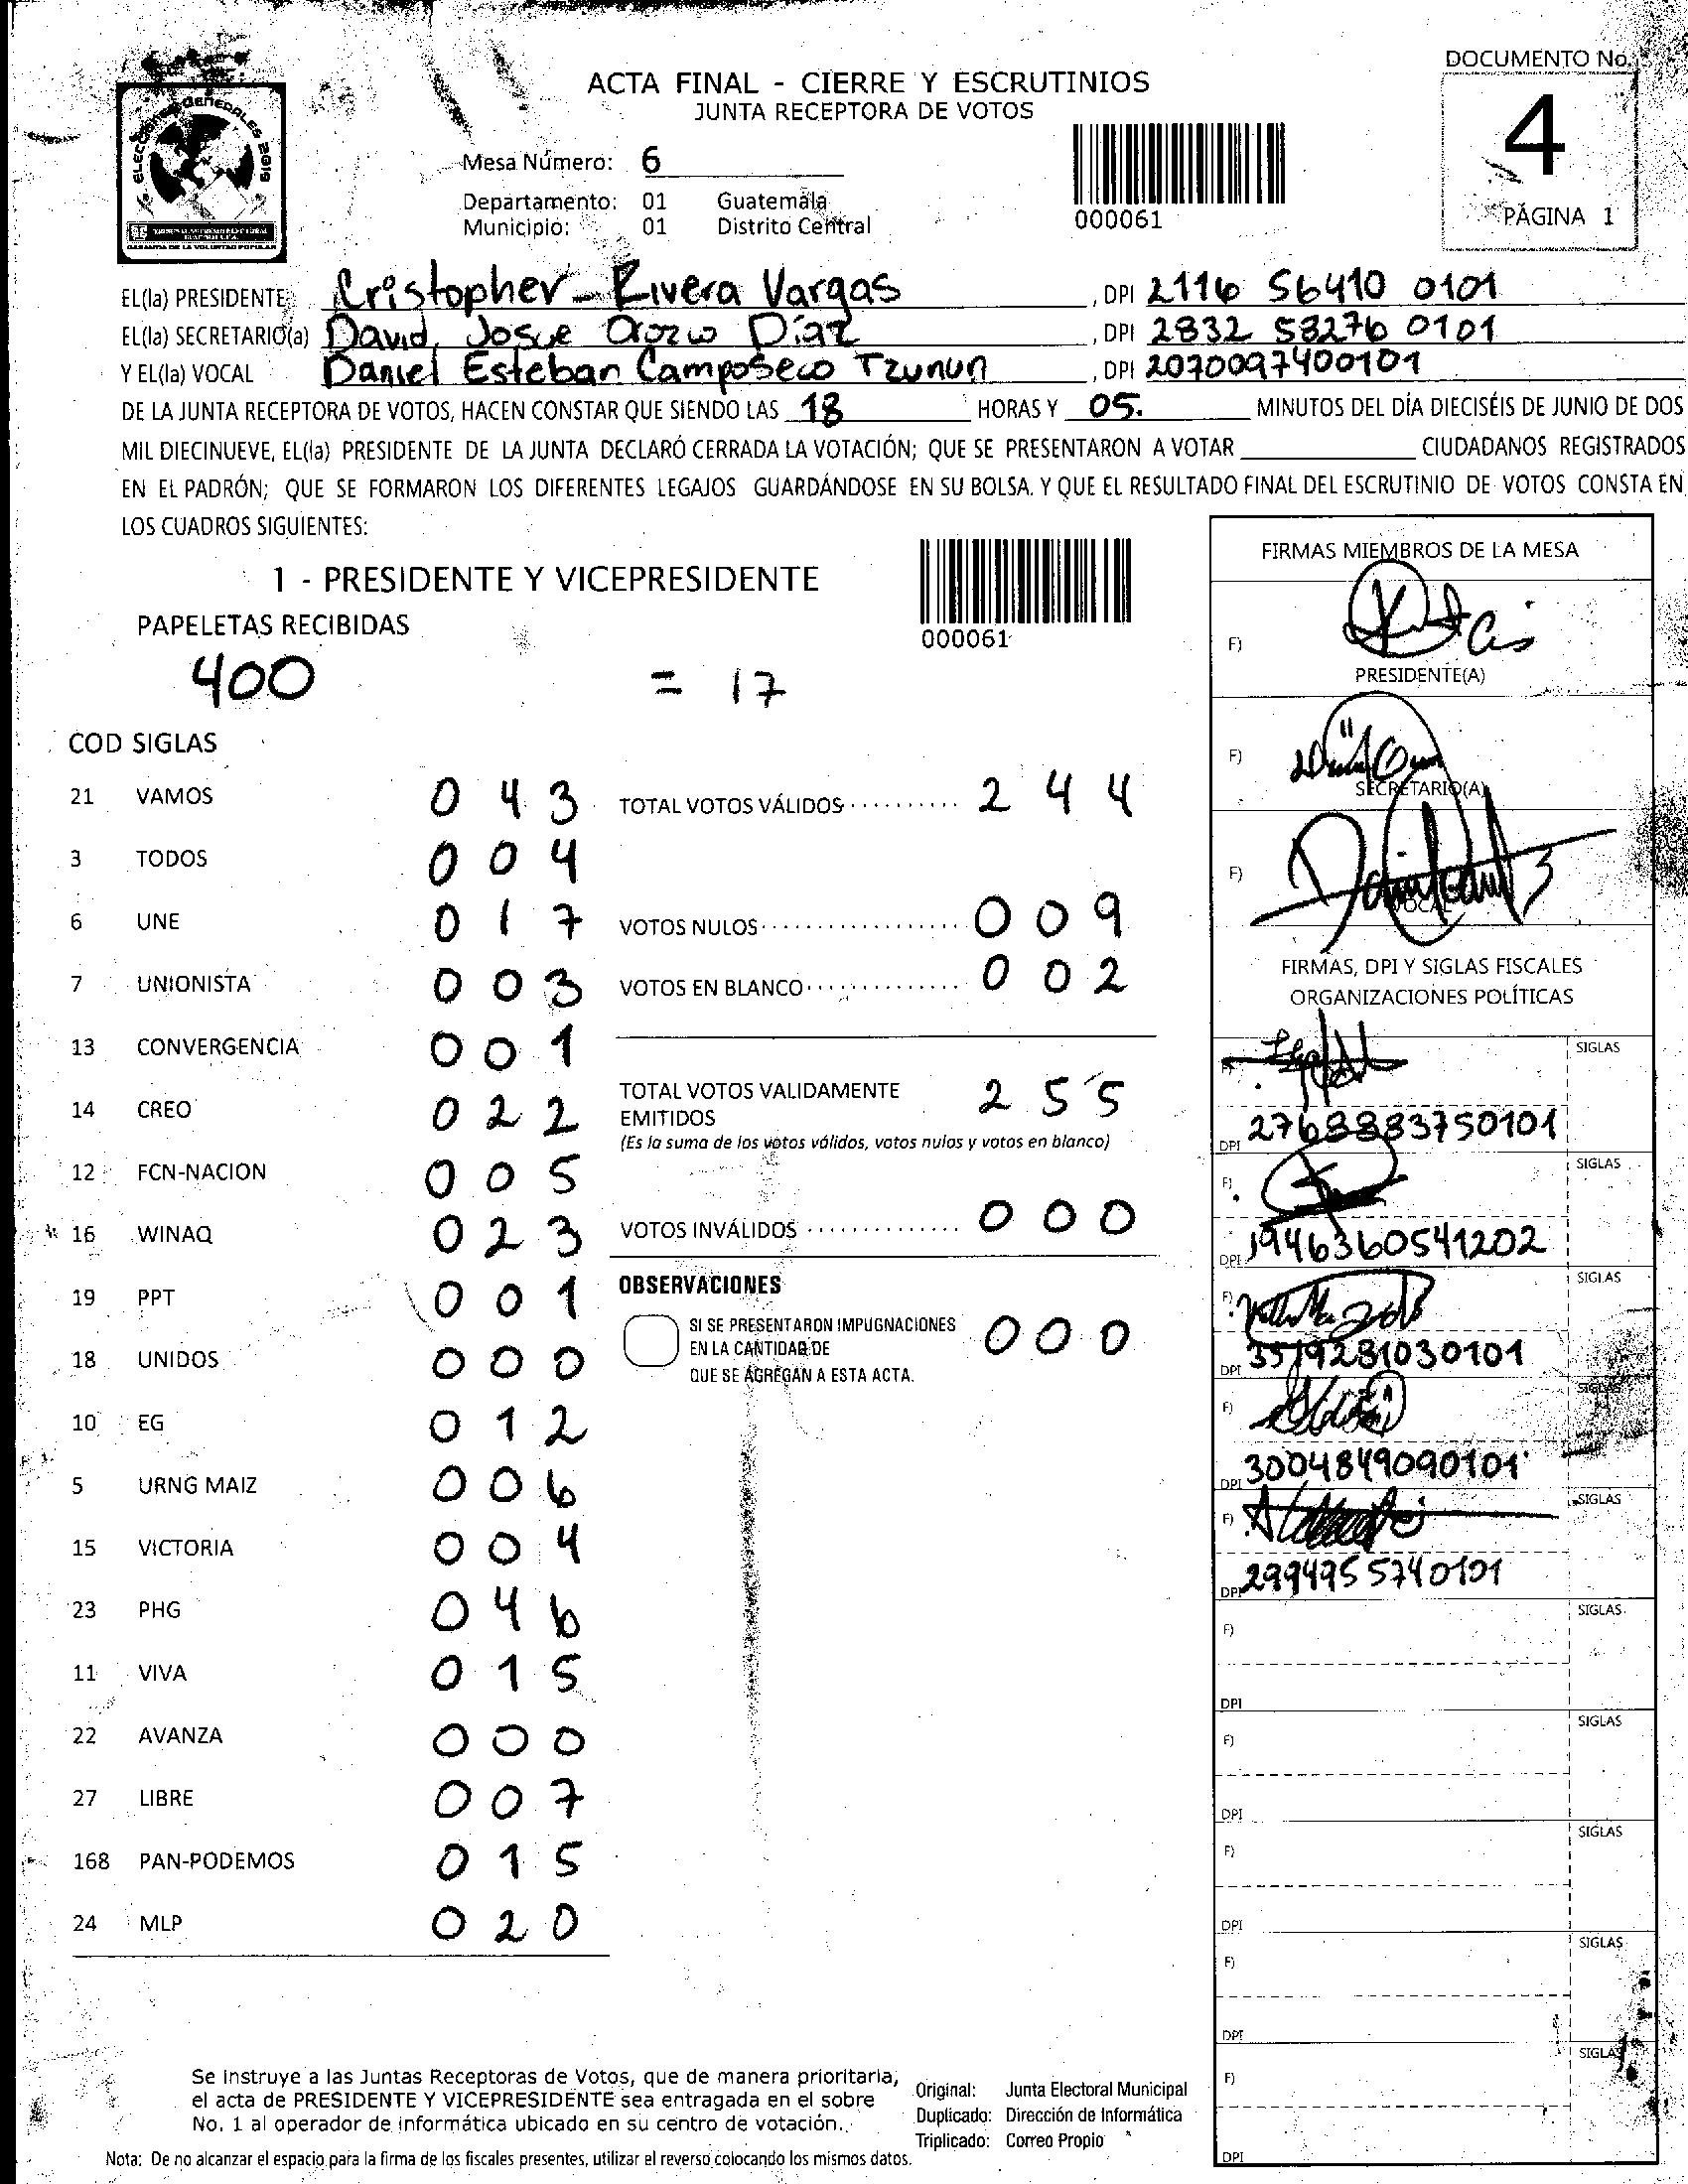 DOCUMENTO No.
4
PÁGINA 1
ELECCIONES GENERALES 2019
GARANTIA DE LA VOLUNTAD POPULAR
ACTA FINAL - CIERRE Y ESCRUTINIOS
JUNTA RECEPTORA DE VOTOS
Mesa Número: 6
Departamento: 01 Guatemala
Municipio: 01 Distrito Central
000061
EL(la) PRESIDENTE Cristopher Rivera Vargas , DPI 2116 56410 0101
EL(la) SECRETARIO(a) David Josue Orozco Díaz , DPI 2832 58276 0101
Y EL(la) VOCAL Daniel Esteban Camposeco Tzunun , DPI 2070097400101
DE LA JUNTA RECEPTORA DE VOTOS, HACEN CONSTAR QUE SIENDO LAS 18 HORAS Y 05. MINUTOS DEL DÍA DIECISÉIS DE JUNIO DE DOS
MIL DIECINUEVE, EL(la) PRESIDENTE DE LA JUNTA DECLARÓ CERRADA LA VOTACIÓN; QUE SE PRESENTARON A VOTAR CIUDADANOS REGISTRADOS
EN EL PADRÓN; QUE SE FORMARON LOS DIFERENTES LEGAJOS GUARDÁNDOSE EN SU BOLSA. Y QUE EL RESULTADO FINAL DEL ESCRUTINIO DE VOTOS CONSTA EN
LOS CUADROS SIGUIENTES:
1 - PRESIDENTE Y VICEPRESIDENTE
000061
PAPELETAS RECIBIDAS
400 = 17
COD SIGLAS
21 VAMOS 0 4 3
3 TODOS 0 0 4
6 UNE 0 1 7
7 UNIONISTA 0 0 3
13 CONVERGENCIA 0 0 1
14 CREO 0 2 2
12 FCN-NACION 0 0 5
16 WINAQ 0 2 3
19 PPT 0 0 1
18 UNIDOS 0 0 0
10 EG 0 1 2
5 URNG MAIZ 0 0 6
15 VICTORIA 0 0 4
23 PHG 0 4 6
11 VIVA 0 1 5
22 AVANZA 0 0 0
27 LIBRE 0 0 7
168 PAN-PODEMOS 0 1 5
24 MLP 0 2 0
TOTAL VOTOS VÁLIDOS 2 4 4
VOTOS NULOS 0 0 9
VOTOS EN BLANCO 0 0 2
TOTAL VOTOS VALIDAMENTE 2 5 5
EMITIDOS
(Es la suma de los votos válidos, votos nulos y votos en blanco)
VOTOS INVÁLIDOS 0 0 0
OBSERVACIONES
SI SE PRESENTARON IMPUGNACIONES
EN LA CANTIDAD DE 0 0 0
QUE SE AGREGAN A ESTA ACTA.
FIRMAS MIEMBROS DE LA MESA
F)
PRESIDENTE(A)
F)
SECRETARIO(A)
F)
VOCAL
FIRMAS, DPI Y SIGLAS FISCALES
ORGANIZACIONES POLÍTICAS
F) SIGLAS
DPI 2768883750101
F) SIGLAS
DPI 1946360541202
F) SIGLAS
DPI 3519281030101
F) SIGLAS
DPI 3004849090101
F) SIGLAS
DPI 2994955740101
F) SIGLAS
DPI
F) SIGLAS
DPI
F) SIGLAS
DPI
F) SIGLAS
DPI
F) SIGLAS
DPI
Se instruye a las Juntas Receptoras de Votos, que de manera prioritaria,
el acta de PRESIDENTE Y VICEPRESIDENTE sea entragada en el sobre
No. 1 al operador de informática ubicado en su centro de votación.
Original: Junta Electoral Municipal
Duplicado: Dirección de Informática
Triplicado: Correo Propio
Nota: De no alcanzar el espacio para la firma de los fiscales presentes, utilizar el reverso colocando los mismos datos.